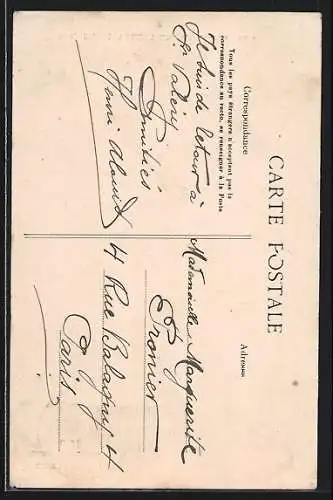 CARTE POSTALE
Correspondance
Tous les pays étrangers n'acceptent pas la
correspondance au recto, se renseigner à la Poste
Je suis de retour à
St Valery
Amitiés
Henri
Adresse
Mademoiselle Marguerite
Pronier
4 Rue Balagny 4
Paris